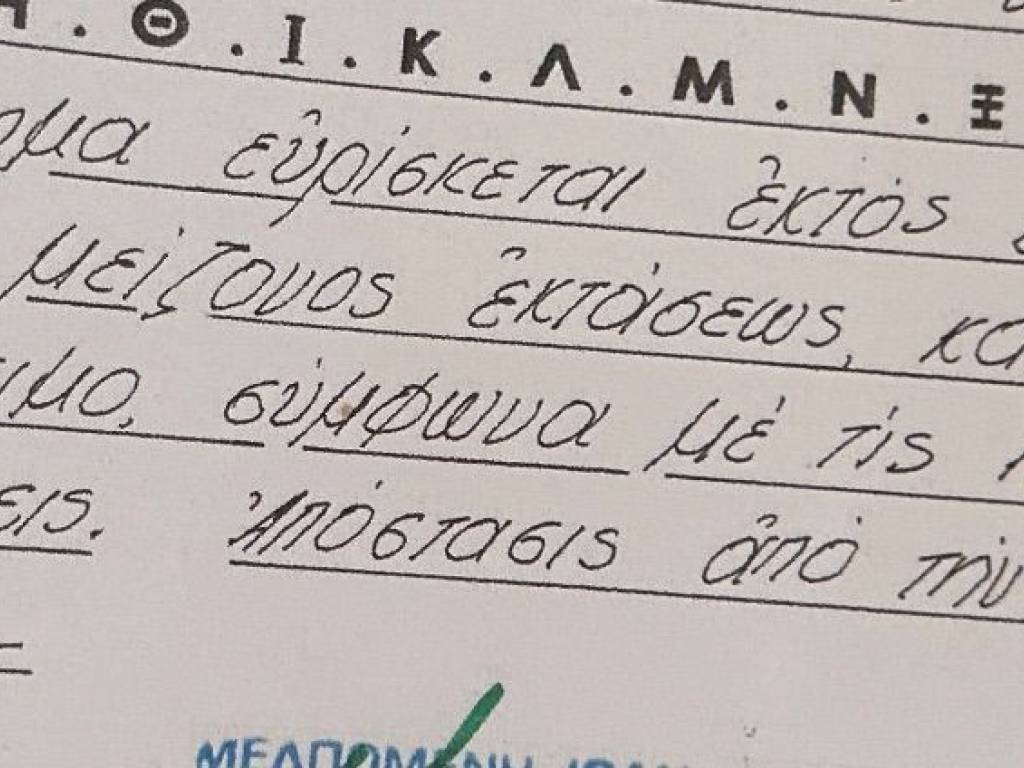 Η . Θ . Ι . Κ . Λ . Μ . Ν . Ξ
εὑρίσκεται ἐκτός
μείζονος ἐκτάσεως,
σύμφωνα μέ τίς
Ἀπόστασις ἀπό τήν
ΜΕΛΠΟΜΕΝΗ